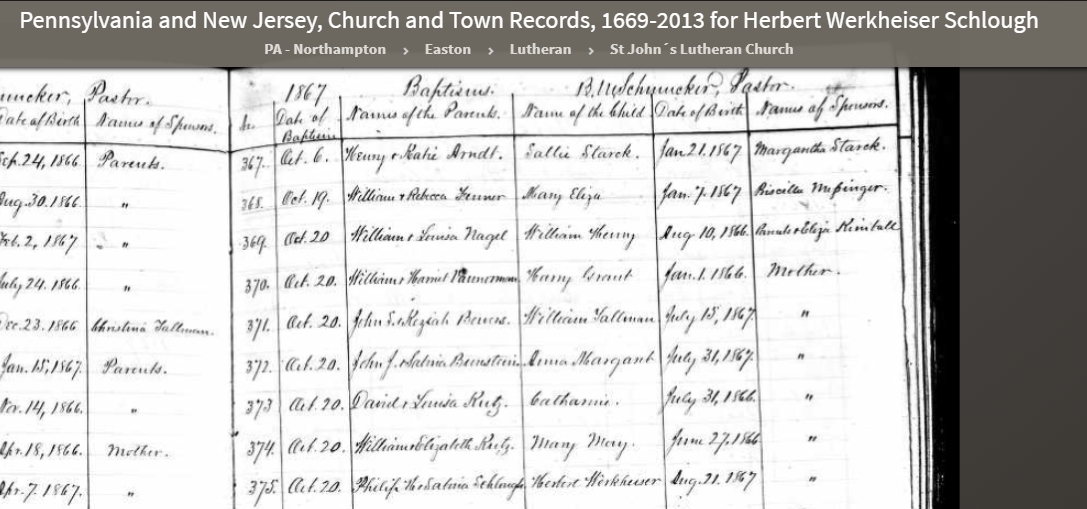 Pennsylvania and New Jersey, Church and Town Records, 1669-2013 for Herbert Werkheiser Schlough
PA - Northampton › Easton › Lutheran › St John´s Lutheran Church
mucker, Pastor. 1867 Baptisms. B.M. Schmucker, Pastor.
Date of Birth Names of Sponsors. No. Date of Baptism Names of the Parents. Name of the Child Date of Birth Names of Sponsors.
Sep. 24, 1866 Parents. 367. Oct. 6. Henry & Katie Arndt. Sallie Starck. Jan 21. 1867 Margaretha Starck.
Aug. 30. 1866 " 368. Oct. 19. William & Rebecca Mary Eliza Jan. 7. 1867 Priscilla Messinger.
Feb. 2, 1867 " 369. Oct. 20 William & Louisa Nagel William Henry Aug 10, 1866. & Eliza Kimball
July 24. 1866. " 370. Oct. 20. William & Harriet Harry Grant Jan. 1. 1866. Mother.
Dec. 23. 1866 Christina Tallman. 371. Oct. 20. John S. & Keziah Bowers. William Tallman July 15, 1867 "
Jan. 15, 1867. Parents. 372. Oct. 20. John J. & Salvia Bernstein Anna Margaret July 31, 1867. "
Nov. 14, 1866. " 373 Oct. 20. David & Louisa Kutz. Catharine. July 31, 1866. "
Apr. 18, 1866. Mother. 374. Oct. 20. William & Elizabeth Kutz. Mary May. June 27, 1866 "
Apr. 7. 1867. " 375. Oct. 20. Philip & Salvia Schlough Herbert Werkheiser Aug. 21. 1867 "